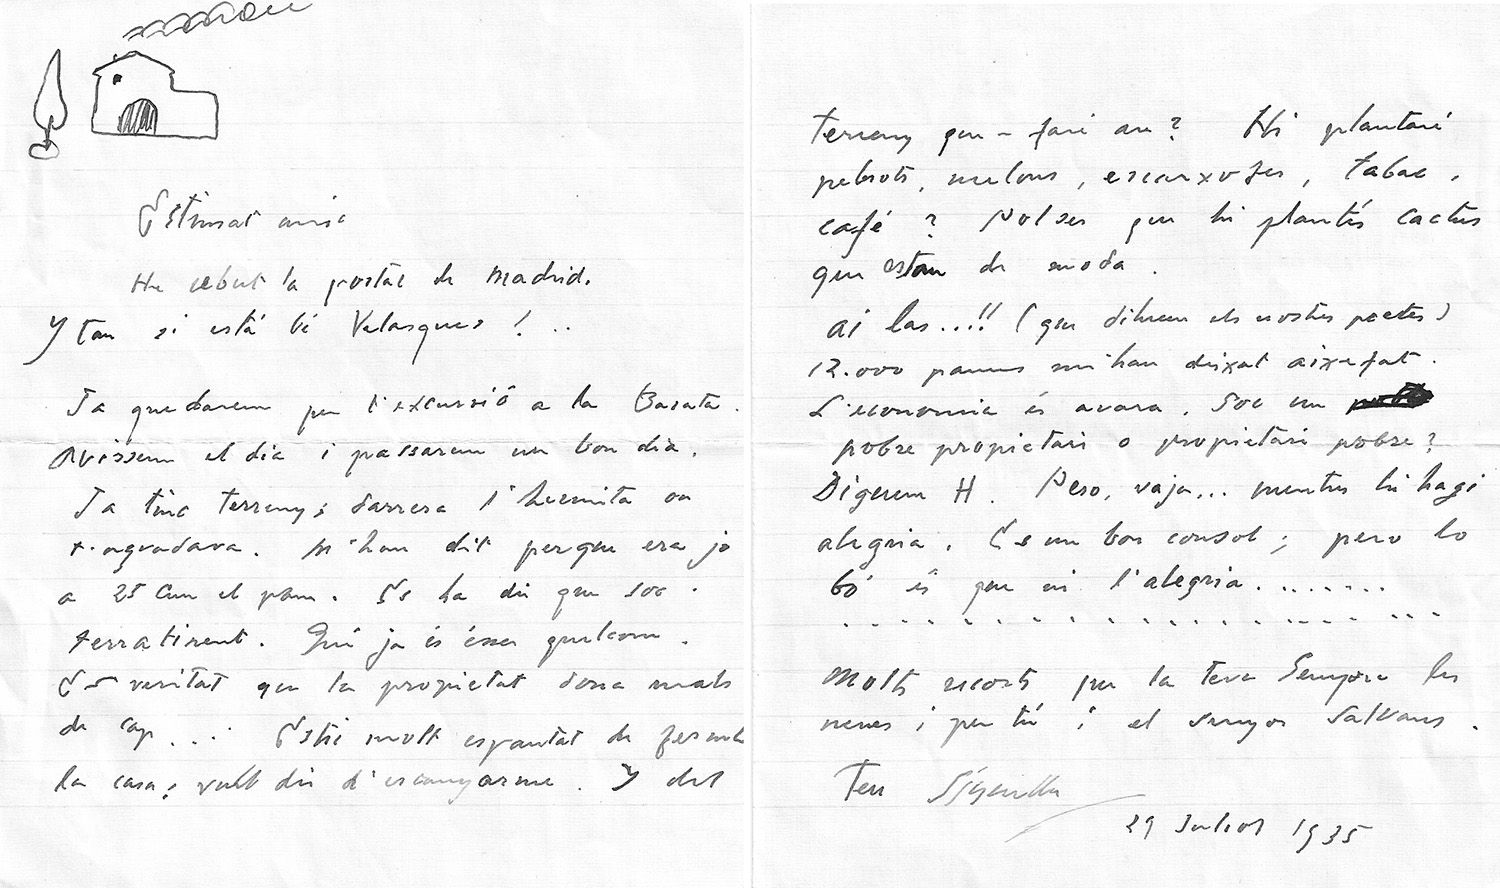 Estimat amic
He rebut la postal de Madrid.
Y tan si está bé Velasques ! ..
Ja quedarem per l'excursió a la Barata.
Avissem el dia i passarem un bon dia.
Ja tinc terreny; darrera l'hermita on
t'agradava. M'han dit perque era jo
a 25 cm el pam. Es ha dir que soc
terratinent. Qui ja és ésser quelcom.
Es veritat que la propietat dona mals
de cap .... Estic molt espantat de ferme
la casa; vull dir d'escanyarme. Y del
terreny que - faré are? Hi plantaré
pebrots, melons, escarxofes, tabac,
café ? Potser que hi plantés cactus
que estan de moda.
ai las...!! (que dihuen els nostres poetes)
12.000 pams m'han deixat aixafat.
L'economia és avara. Soc un
pobre propietari o propietari pobre?
Digerem H. Pero, vaja... mentres hi hagi
alegria. Es un bon consol; pero lo
bó és que ni l'alegria........
Molts records per la teva Sempre les
nenes i per tú i el senyor Salvans.
Teu
29 Juliol 1935